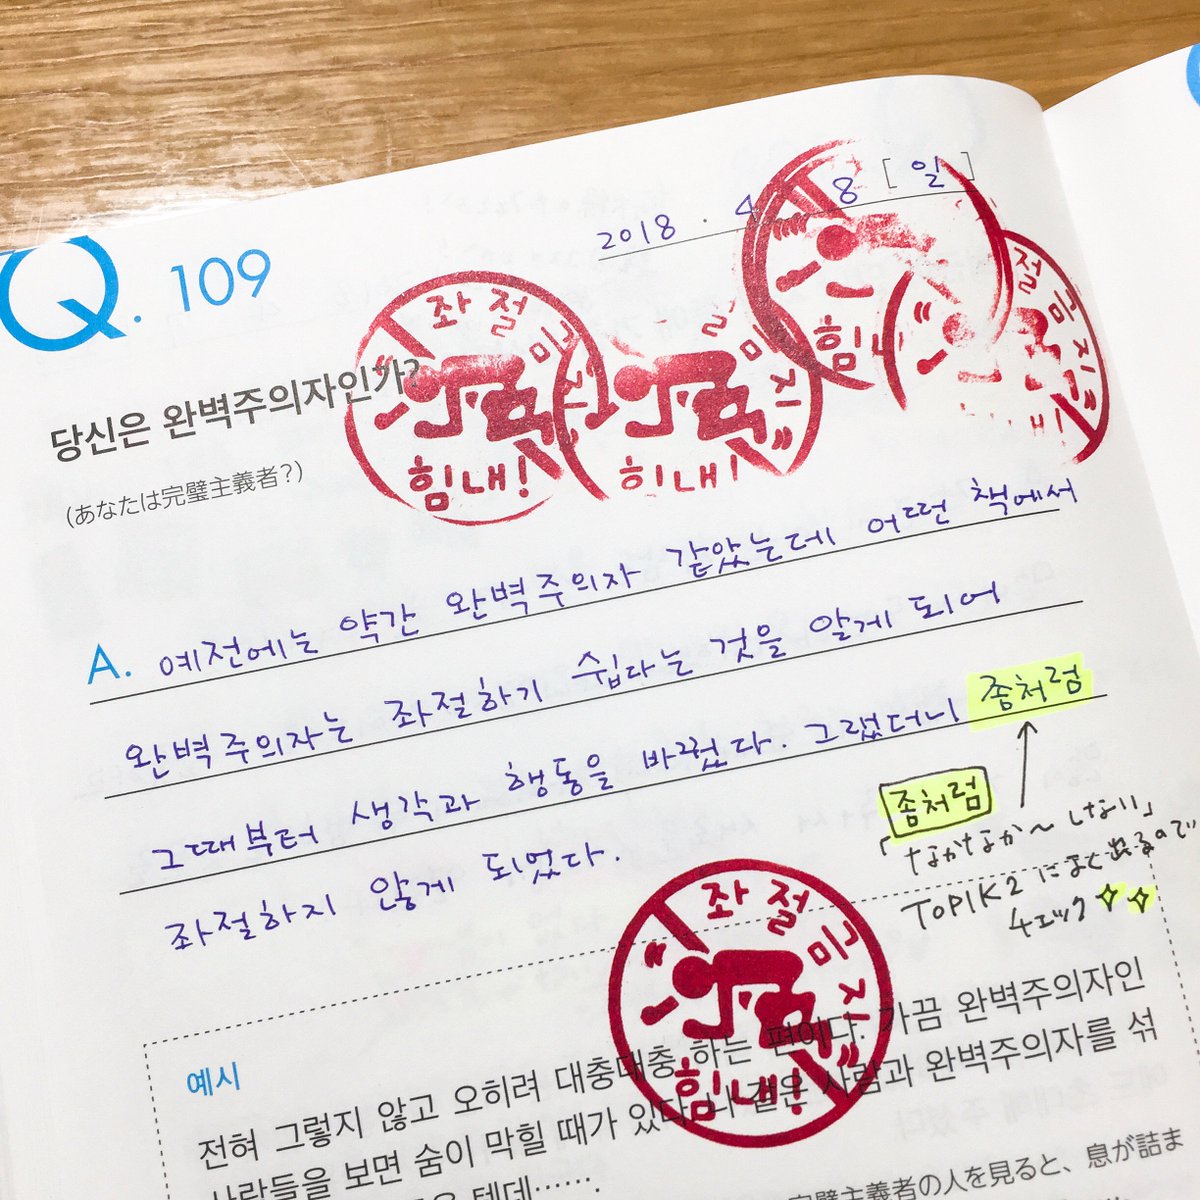 2018 . 4 . 8 [ 일 ]
Q. 109
좌절금지
힘내!
좌절금지
힘내!
힘내
절금지
당신은 완벽주의자인가?
(あなたは完璧主義者?)
A. 예전에는 약간 완벽주의자 같았는데 어떤 책에서
완벽주의자는 좌절하기 쉽다는 것을 알게 되어
그때부터 생각과 행동을 바꿨다. 그랬더니 좀처럼
좌절하지 않게 되었다.
좀처럼
「なかなか〜しない」
TOPIK2 によく出るので
チェック
좌절금지
힘내!
예시
전혀 그렇지 않고 오히려 대충대충 하는 편이다. 가끔 완벽주의자인
사람들을 보면 숨이 막힐 때가 있다. 나 같은 사람과 완벽주의자를 섞
텐데…….
完璧主義者の人を見ると、息が詰ま